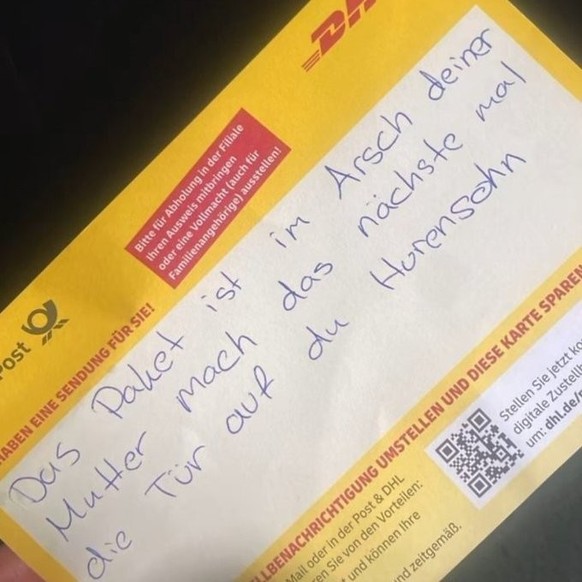 DH
Bitte für Abholung in der Filiale
Ihren Ausweis mitbringen
oder eine Vollmacht (auch für
Familienangehörige) ausstellen!
Post
HABEN EINE SENDUNG FÜR SIE!
Das Paket ist im Arsch deiner
Mutter mach das nächste mal
die Tür auf du Hurensohn
LLBENACHRICHTIGUNG UMSTELLEN UND DIESE KARTE SPAREN
Mail oder in der Post & DHL
ren Sie von den Vorteilen:
t und können Ihre
nd zeitgemäß.
Stellen Sie jetzt ko
digitale Zustellb
um: dhl.de/